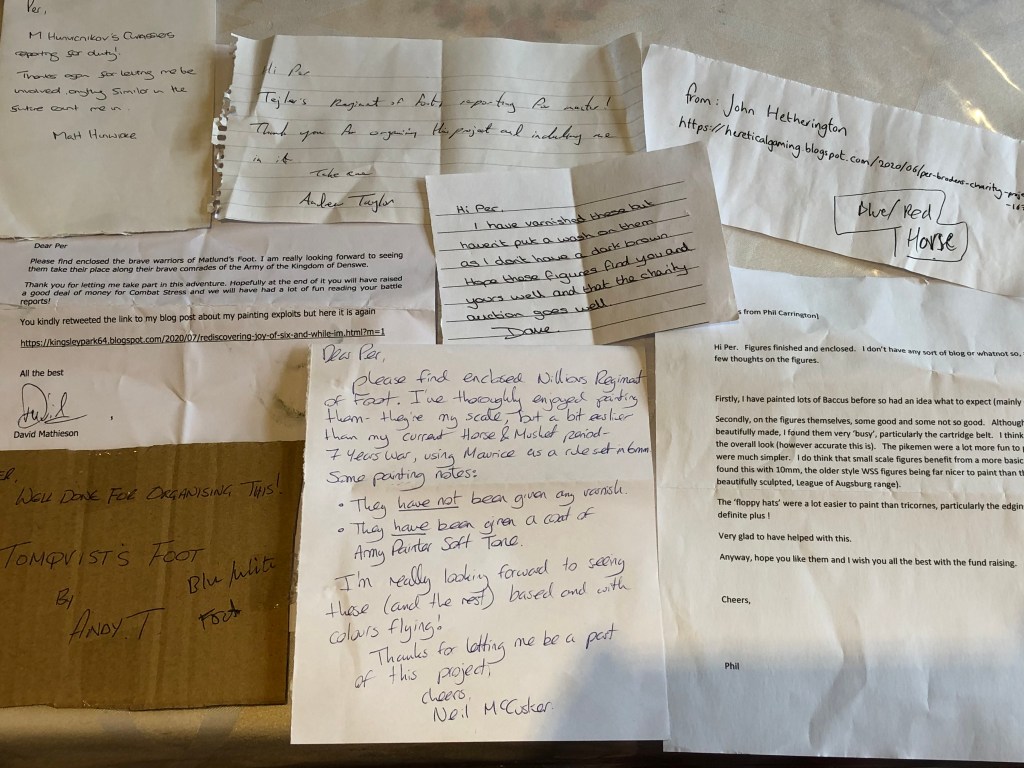 Per,
M Hummcnikov's Cuirassiers
reporting for duty!
Thanks again for letting me be
involved, anything similar in the
future count me in.
Matt
Hi Per
Taylor's Regiment of foot, reporting for muster!
Thank you for organising this project and including me
in it.
Take care
Andrew Taylor
from: John Hetherington
https://hereticalgaming.blogspot.com/2020/06/per-brodens-charity-proj
Blue/Red
Horse
Hi Per,
I have varnished these but
haven't put a wash on them
as I don't have a dark brown
Hope these figures find you and
yours well and that the charity
auction goes well
Dave
Dear Per
Please find enclosed the brave warriors of Matlund's Foot. I am really looking forward to seeing
them take their place along their brave comrades of the Army of the Kingdom of Denswe.
Thank you for letting me take part in this adventure. Hopefully at the end of it you will have raised
a good deal of money for Combat Stress and we will have had a lot of fun reading your battle
reports!
You kindly retweeted the link to my blog post about my painting exploits but here it is again
https://kingsleypark64.blogspot.com/2020/07/rediscovering-joy-of-six-and-while-im.html?m=1
All the best
David Mathieson
WELL DONE FOR ORGANISING THIS!
TOMQVIST'S FOOT
BY
ANDY T
Blue/White
Foot
Dear Per,
please find enclosed Nillbors Regiment
of Foot. I've thoroughly enjoyed painting
them- they're my scale, but a bit earlier
than my current Horse & Musket period-
7 Years War, using Maurice as a rule set in 6mm
Some painting notes:
• They have not been given any varnish.
• They have been given a coat of
Army Painter Soft Tone.
I'm really looking forward to seeing
these (and the rest) based and with
colours flying!
Thanks for letting me be a part
of this project,
cheers,
Neil McCusker.
s from Phil Carrington)
Hi Per. Figures finished and enclosed. I don't have any sort of blog or whatnot so,
few thoughts on the figures.
Firstly, I have painted lots of Baccus before so had an idea what to expect (mainly
Secondly, on the figures themselves, some good and some not so good. Although
beautifully made, I found them very 'busy', particularly the cartridge belt. I think
the overall look (however accurate this is). The pikemen were a lot more fun to p
were much simpler. I do think that small scale figures benefit from a more basic
found this with 10mm, the older style WSS figures being far nicer to paint than th
beautifully sculpted, League of Augsburg range).
The 'floppy hats' were a lot easier to paint than tricornes, particularly the edgin
definite plus !
Very glad to have helped with this.
Anyway, hope you like them and I wish you all the best with the fund raising.
Cheers,
Phil